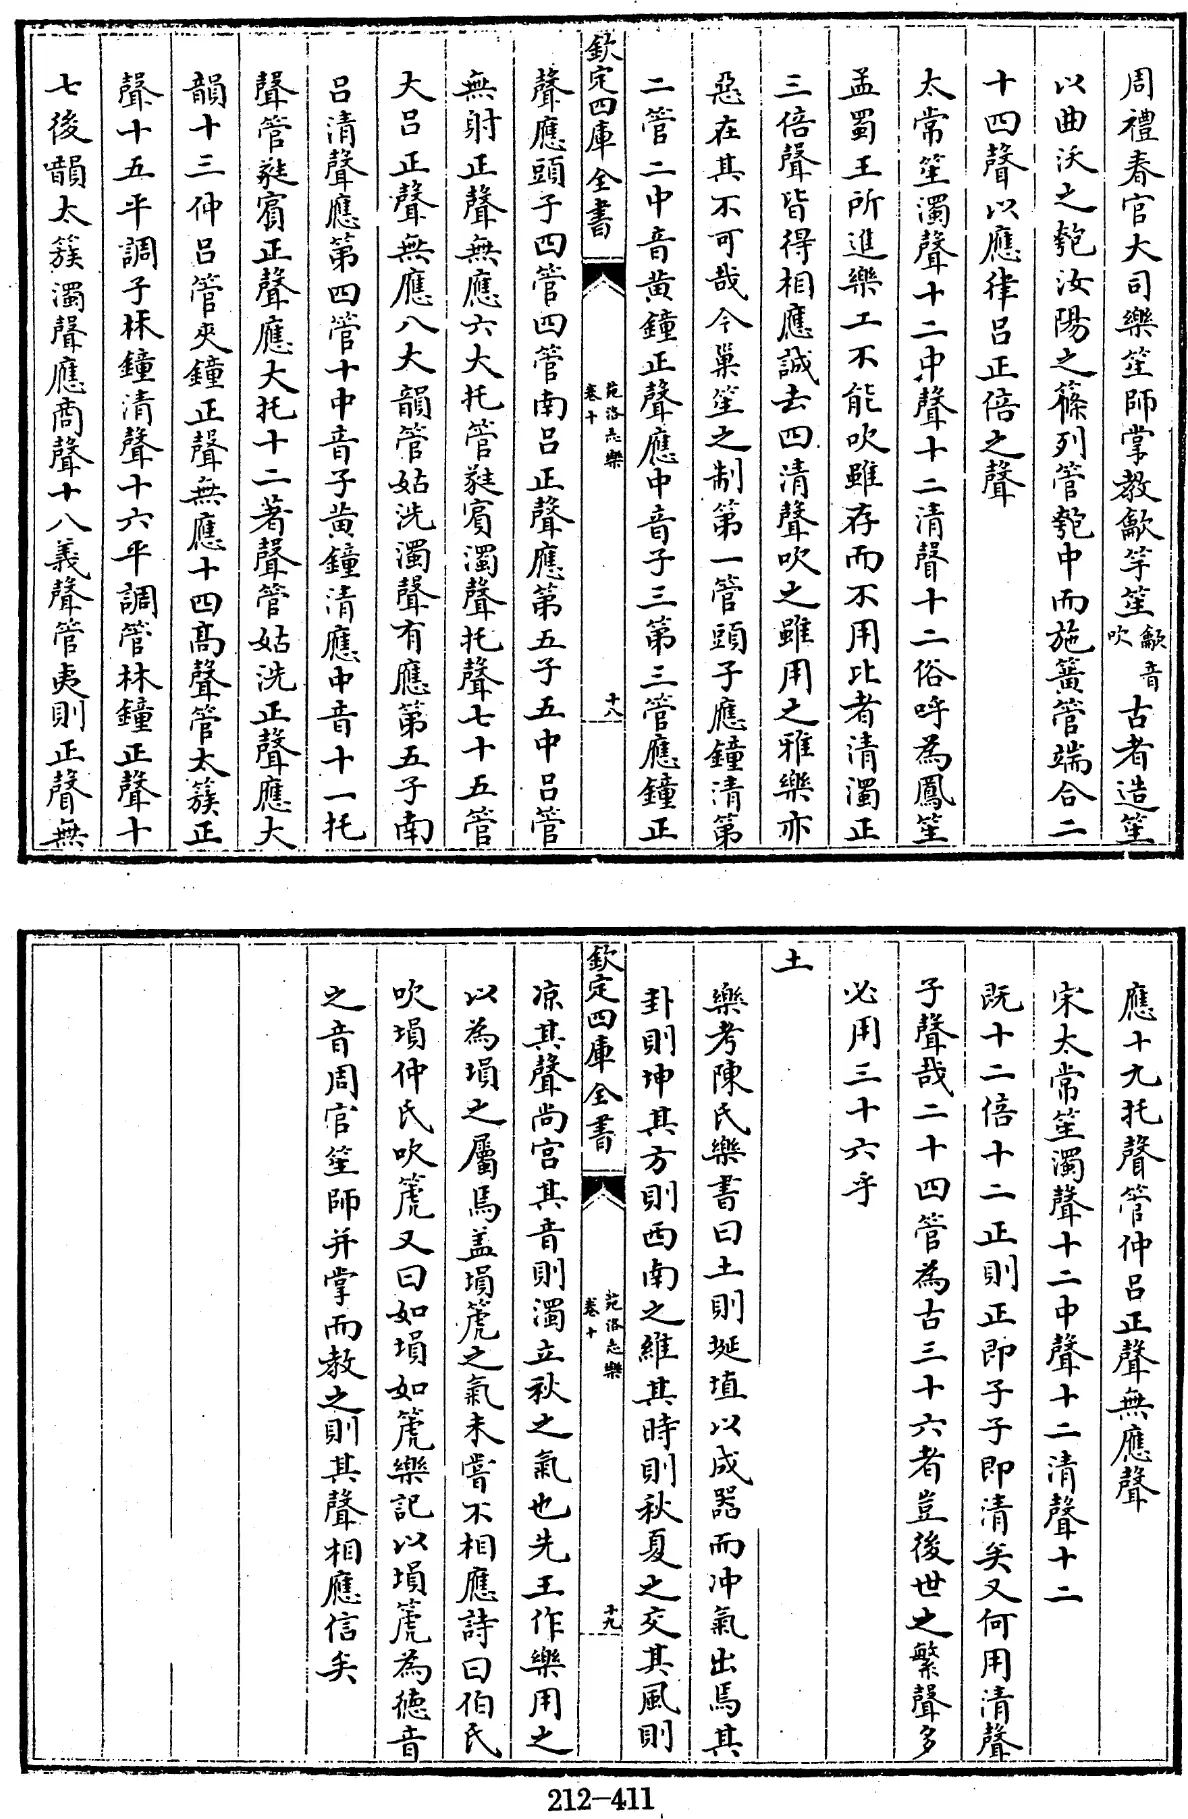 周禮春官大司樂笙師掌教龡竽笙龡音吹古者造笙
以曲沃之匏汝陽之篠列管匏中而施簧管端合二
十四聲以應律呂正倍之聲
太常笙濁聲十二中聲十二清聲十二俗呼為鳳笙
孟蜀王所進樂工不能吹雖存而不用比者清濁正
三倍聲皆得相應誠去四清聲吹之雖用之雅樂亦
惡在其不可哉今巢笙之制第一管頭子應鐘清第
二管二中音黃鐘正聲應中音子三第三管應鐘正
欽定四庫全書
苑洛志樂
卷十
十八
聲應頭子四管四管南呂正聲應第五子五中呂管
無射正聲無應六大托管蕤賓濁聲托聲七十五管
大呂正聲無應八大韻管姑洗濁聲有應第五子南
呂清聲應第四管十中音子黃鐘清應中音十一托
聲管蕤賓正聲應大托十二著聲管姑洗正聲應大
韻十三仲呂管夾鐘正聲無應十四高聲管太簇正
聲十五平調子林鐘清聲十六平調管林鐘正聲十
七後韻太簇濁聲應商聲十八義聲管夷則正聲無
應十九托聲管仲呂正聲無應聲
宋太常笙濁聲十二中聲十二清聲十二
既十二倍十二正則正即子子即清矣又何用清聲
子聲哉二十四管為古三十六者豈後世之繁聲多
必用三十六乎
土
樂考陳氏樂書曰土則埏埴以成器而冲氣出焉其
卦則坤其方則西南之維其時則秋夏之交其風則
欽定四庫全書
苑洛志樂
卷十
十九
凉其聲尚宫其音則濁立秋之氣也先王作樂用之
以為塤之屬焉盖塤篪之氣未嘗不相應詩曰伯氏
吹塤仲氏吹篪又曰如塤如篪樂記以塤篪為德音
之音周官笙師并掌而教之則其聲相應信矣
212-411